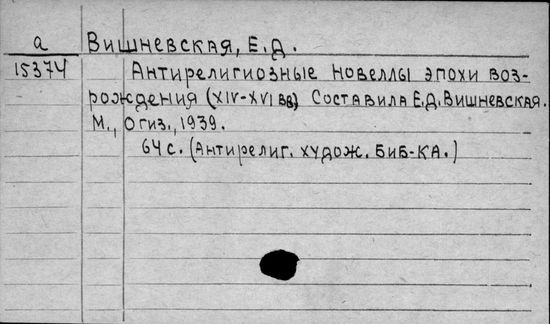 а Вишневская, Е.Д.
15374 Антирелигиозные новеллы эпохи воз-
рождения (XIV-XVI вв) Составила Е.Д. Вишневская.
М., Огиз., 1939.
64 с. (Антирелиг. худож. биб-ка.)